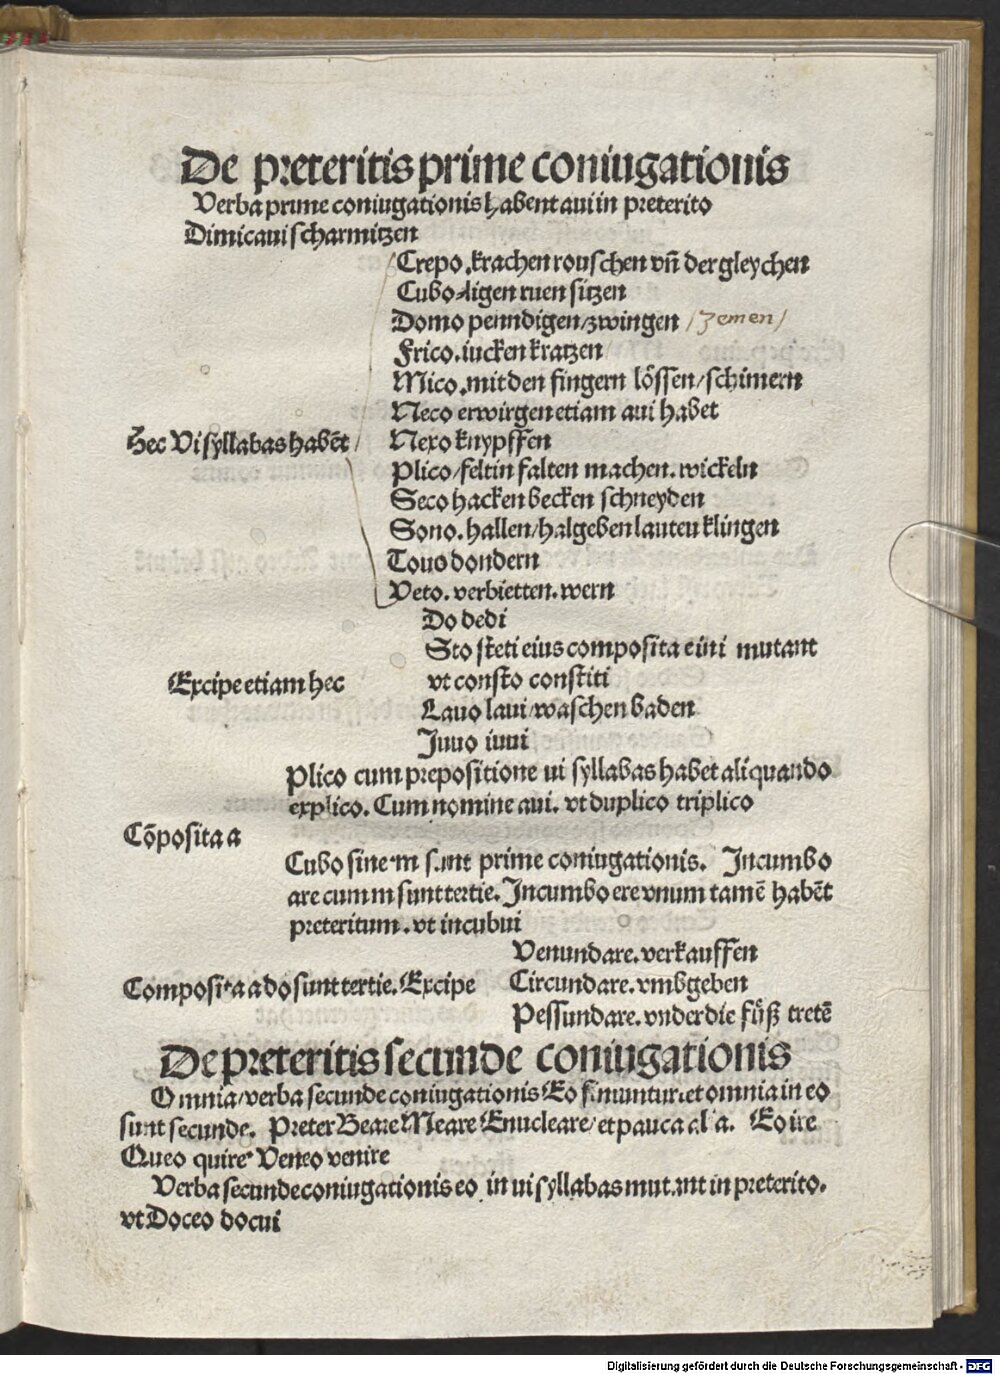 De preteritis prime coniugationis
Verba prime coniugationis habent aui in preterito
Dimicaui scharmitzen
Crepo. krachen rouschen vñ der gleychen
Cubo ligen ruen sitzen
Domo penndigen/zwingen /zemen/
Frico. iucken kratzen
Mico. mit den fingern lössen/schimern
Neco erwirgen etiam aui habet
Hec Vi syllabas habēt Nexo knypffen
Plico/felt in falten machen. wickeln
Seco hacken becken schneyden
Sono. hallen/halgeben lauten klingen
Tono dondern
Veto. verbietten. wern
Do dedi
Sto steti eius composita e in i mutant
Excipe etiam hec vt consto constiti
Lauo laui/waschen baden
Juuo iuui
Plico cum prepositione ui syllabas habet aliquando
explico. Cum nomine aui. vt duplico triplico
Cōposita a
Cubo sine m sunt prime coniugationis. Incumbo
are cum m sunt tertie. Incumbo ere vnum tamē habēt
preteritum. vt incubui
Venundare. verkauffen
Composita a do sunt tertie. Excipe Circundare. vmbgeben
Pessundare. vnder die füß tretē
De preteritis secunde coniugationis
Omnia/verba secunde coniugationis Eo finiuntur. et omnia in eo
sunt secunde. Preter Beare Meare Enucleare/et pauca alia. Eo ire
Queo quire Veneo venire
Verba secunde coniugationis eo in ui syllabas mutant in preterito.
vt Doceo docui
Digitalisierung gefördert durch die Deutsche Forschungsgemeinschaft - DFG